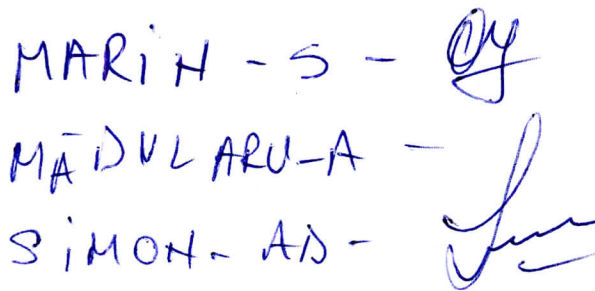 MARIN - S -
MĂDULARU-A -
SIMON - AD -